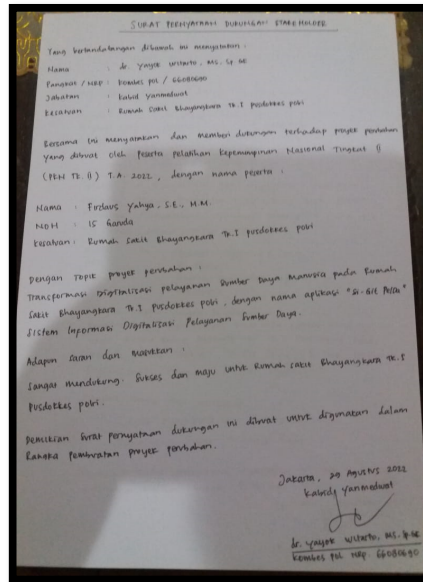 SURAT PERNYATAAN DUKUNGAN STAKEHOLDER
Yang bertandatangan dibawah ini menyatakan :
Nama : dr. Yayok Witarto, MS. Sp GK
Pangkat / NRP : Kombes pol / 66080690
Jabatan : Kabid Yanmedwat
Kesatuan : Rumah Sakit Bhayangkara Tk.I Pusdokkes polri
Bersama ini menyatakan dan memberi dukungan terhadap proyek perubahan
yang dibuat oleh Peserta pelatihan Kepemimpinan Nasional Tingkat II
(PKN TK. II) T.A. 2022, dengan nama peserta :
Nama : Firdaus Yahya, S.E., M.M.
NDH : 15 Ganda
Kesatuan : Rumah Sakit Bhayangkara Tk.I pusdokkes polri
Dengan Topik proyek perubahan :
Transformasi Digitalisasi pelayanan Sumber Daya Manusia pada Rumah
Sakit Bhayangkara Tk.I Pusdokkes polri, dengan nama aplikasi
Sistem Informasi Digitalisasi Pelayanan Sumber Daya.
Adapun saran dan masukkan :
Sangat mendukung. Sukses dan maju untuk Rumah sakit Bhayangkara Tk.I
Pusdokkes polri.
Demikian surat pernyataan dukungan ini dibuat untuk digunakan dalam
Rangka Pembuatan proyek perubahan.
Jakarta, 29 Agustus 2022
Kabid Yanmedwat
dr. Yayok Witarto, MS. Sp GK
Kombes pol NRP. 66080690